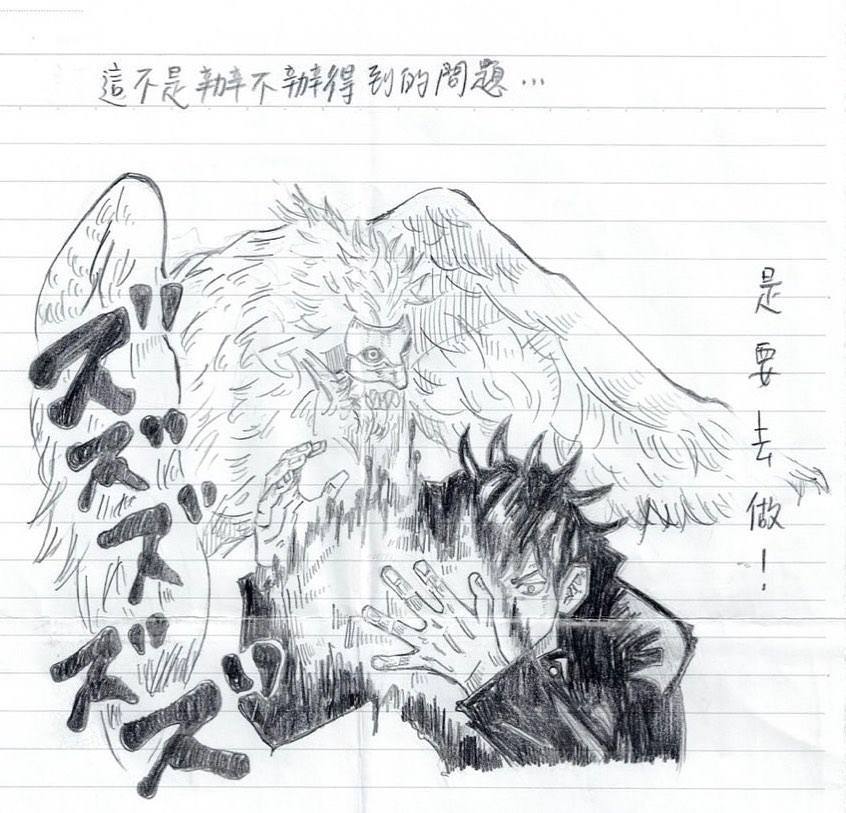 這不是辦不辦得到的問題…
是要去做！
ズズズズズ